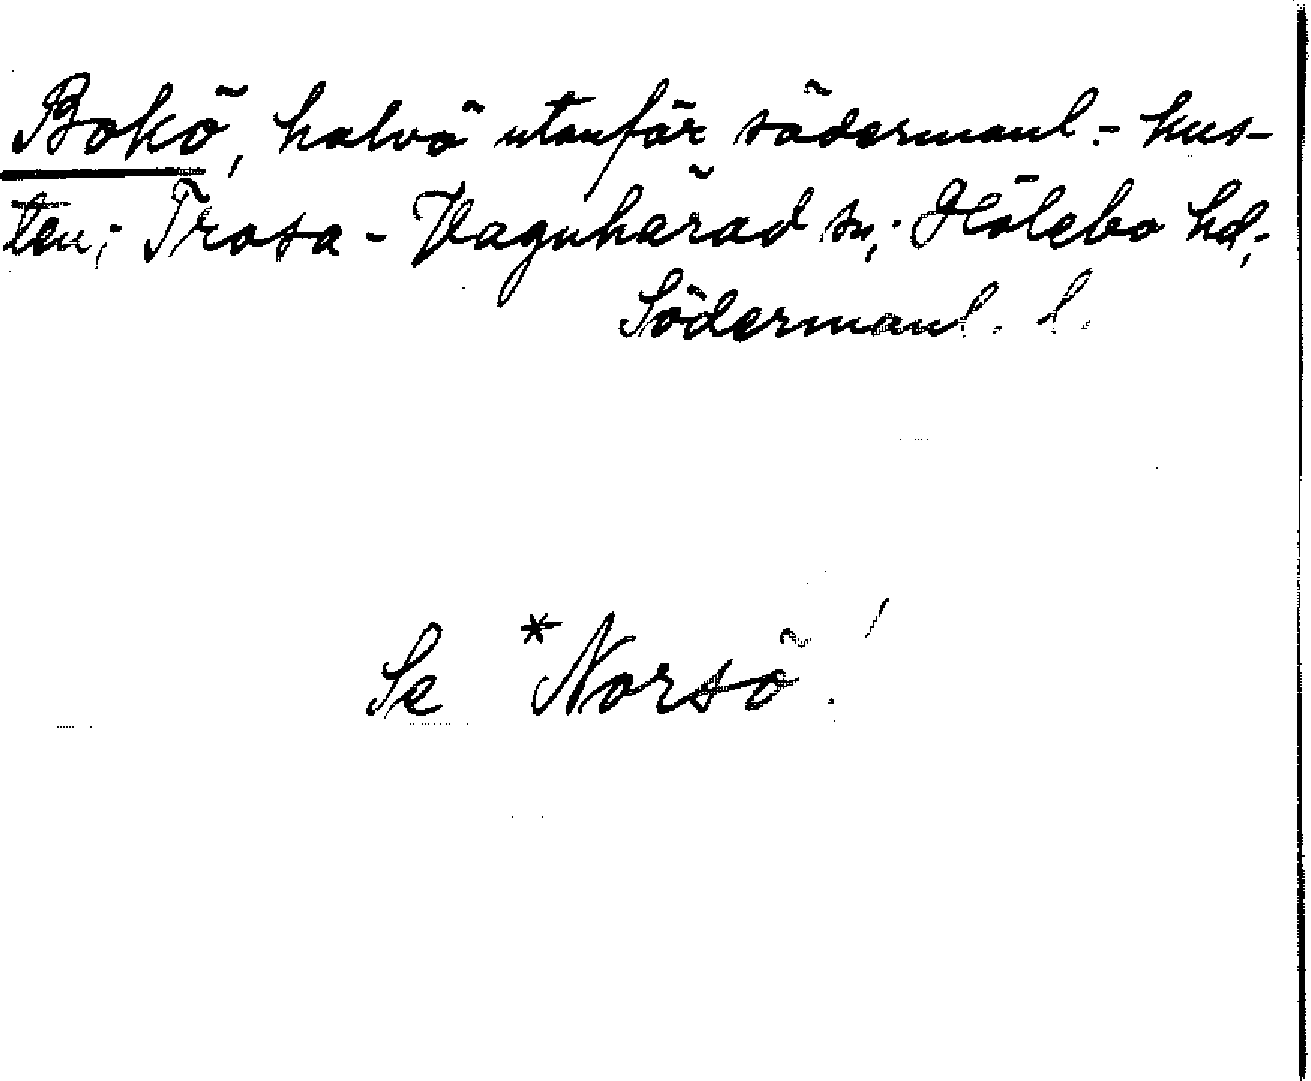 Bokö, halvö utanför södermanl.-kus-
ten; Trosa-Vagnhärad sn; Hölebo hd;
Södermanl. l.
Se *Norsö!